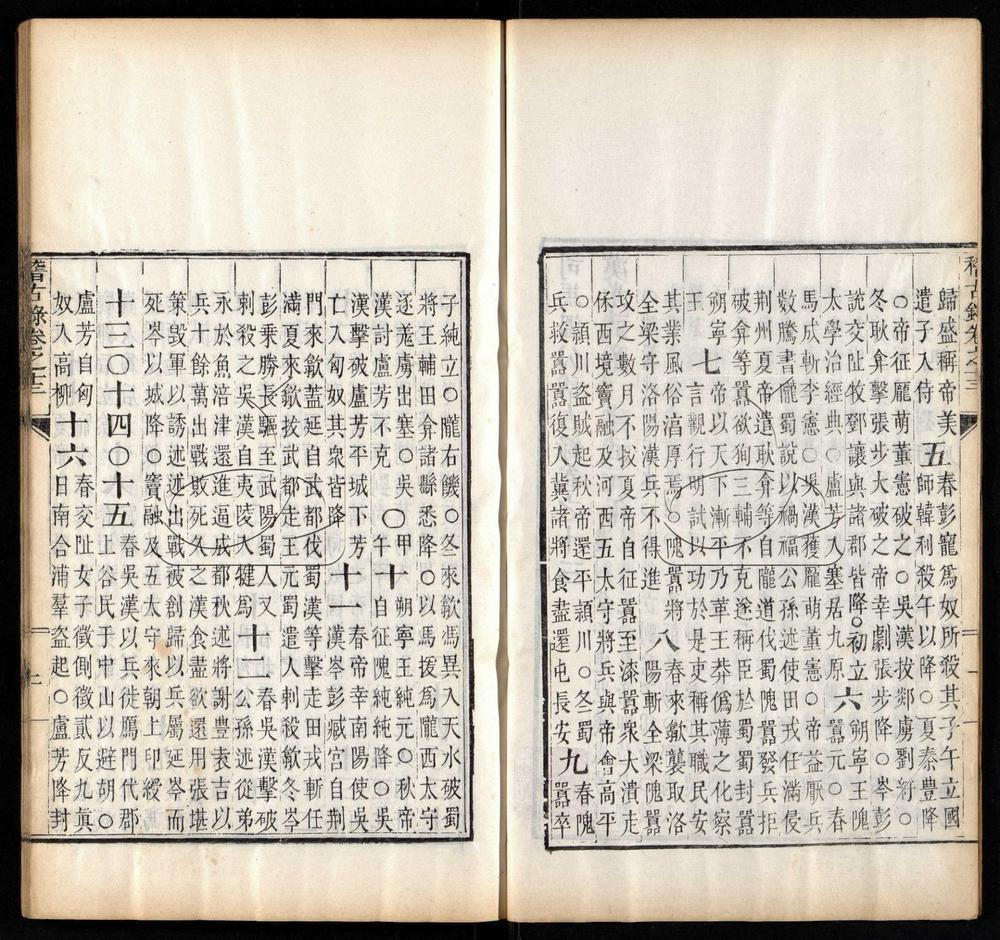 歸盛稱帝美五春彭寵爲奴所殺其子午立國
遣子入侍師韓利殺午以降○夏秦豊降
○帝征龐萌董憲破之○吳漢拔郯虜劉紆○
冬耿弇擊張步大破之帝幸劇張步降○岑彭
說交阯牧鄧讓與諸郡皆降○初立六朔寧王隗
太學治經典○盧芳入塞居九原囂元○春
馬成斬李憲○吳漢獲龐萌董憲○帝益厭兵
數騰書隴蜀說以禍福公孫述使田戎任滿侵
荆州夏帝遣耿弇等自隴道伐蜀隗囂發兵拒
破弇等囂欲狥三輔不克遂稱臣於蜀蜀封囂
朔寧七以天下漸平乃革王莽僞薄之化察
王言觀行明試以功於是吏稱其職民安
其業風俗滔厚焉○隗囂將八春來歙襲取洛
全梁守洛陽漢兵不得進陽斬全梁隗囂
攻之數月不拔夏帝自征囂至漆囂衆大潰走
保西境竇融及河西五太守將兵與帝會高平
○頴川盜賊起秋帝還平頴川○冬蜀九春隗
兵救囂囂復入冀諸將食盡還屯長安囂卒
子純立○隴右饑○冬來歙馮異入天水破蜀
將王輔田弇諸縣悉降○以馬援爲隴西太守
逐羗虜出塞○吳○甲十朔寧王純元○秋帝
漢討盧芳不克午自征隗純純降○吳
漢擊破盧芳平城下芳十一春帝幸南陽使吳
亡入匈奴其衆皆降漢岑彭臧宮自荆
門來歙蓋延自武都伐蜀漢等擊走田戎斬任
滿夏來歙拔武都走王元蜀遣人刺殺歙冬岑
彭乗勝長驅至武陽蜀人又十二春吳漢擊破
刺殺之吳漢自夷陵入犍爲公孫述從弟
永於魚涪津還進逼成都秋述將謝豊袁吉以
兵十餘萬出戰敗死久之漢食盡欲還用張堪
策毀軍以誘述述出戰被創歸以兵屬延岑而
死岑以城降○竇融及五太守來朝上印綬
十三○十四○十五春吳漢以兵徙鴈門代郡
上谷民于中山以避胡○
盧芳自匈十六春交阯女子徵側徵貳反九眞
奴入高柳日南合浦羣盜起○盧芳降封
稽古錄卷之十三